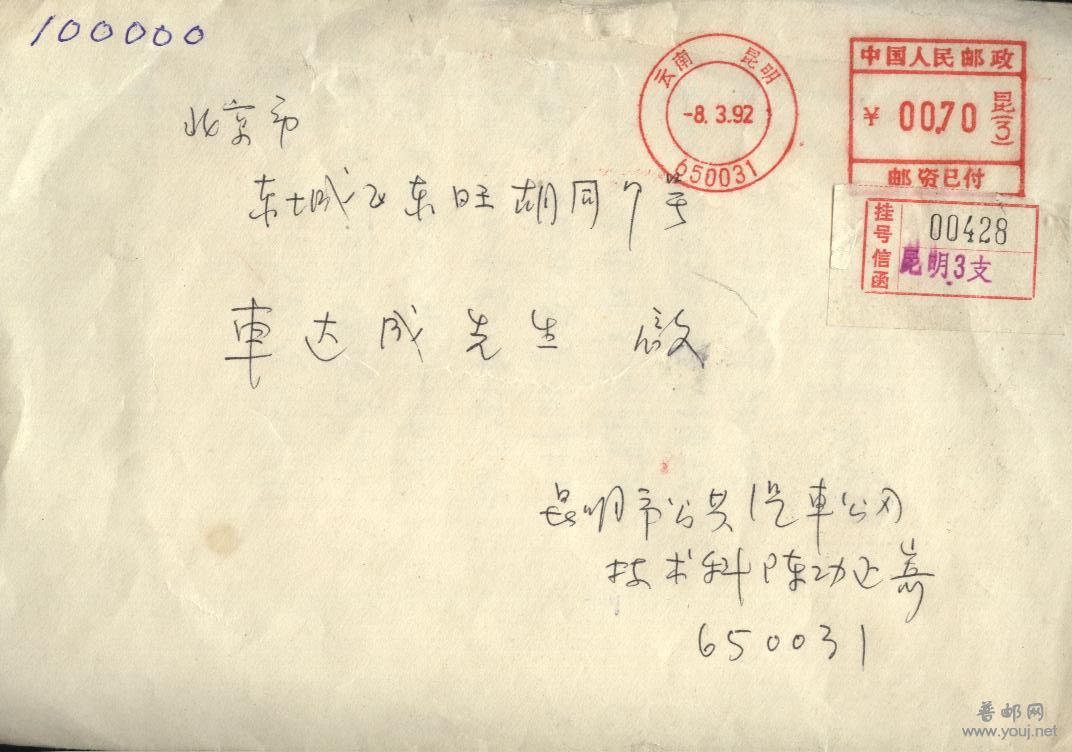 100000
云南 昆明
-8. 3.92
650031
中国人民邮政
¥ 00.70 昆(3)
邮资已付
挂号信函
00428
昆明3支
北京市
东城区东旺胡同7号
車达成先生 啟
昆明市公共汽車公司
技术科陈功正寄
650031
普邮网
www.youj.net